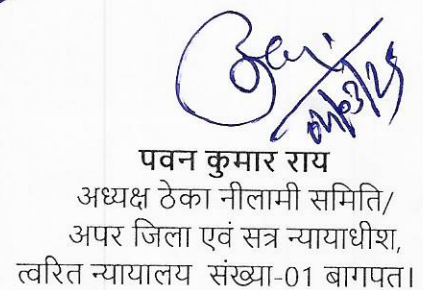 पवन कुमार राय
अध्यक्ष ठेका नीलामी समिति/
अपर जिला एवं सत्र न्यायाधीश,
त्वरित न्यायालय संख्या-01 बागपत।